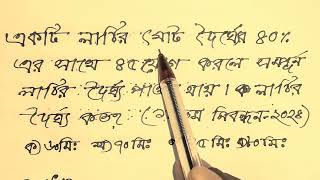 একটি লাঠির মোট দৈর্ঘ্যের ৪০%
এর সাথে ৪৫ যোগ করলে সম্পূর্ন
লাঠির দৈর্ঘ্য পাওয়া যায়। লাঠির
দৈর্ঘ্য কত? নিবন্ধন-২০২৪)
ক) ৬০মিঃ খ) ৭০মিঃ মিঃ ৮০মিঃ